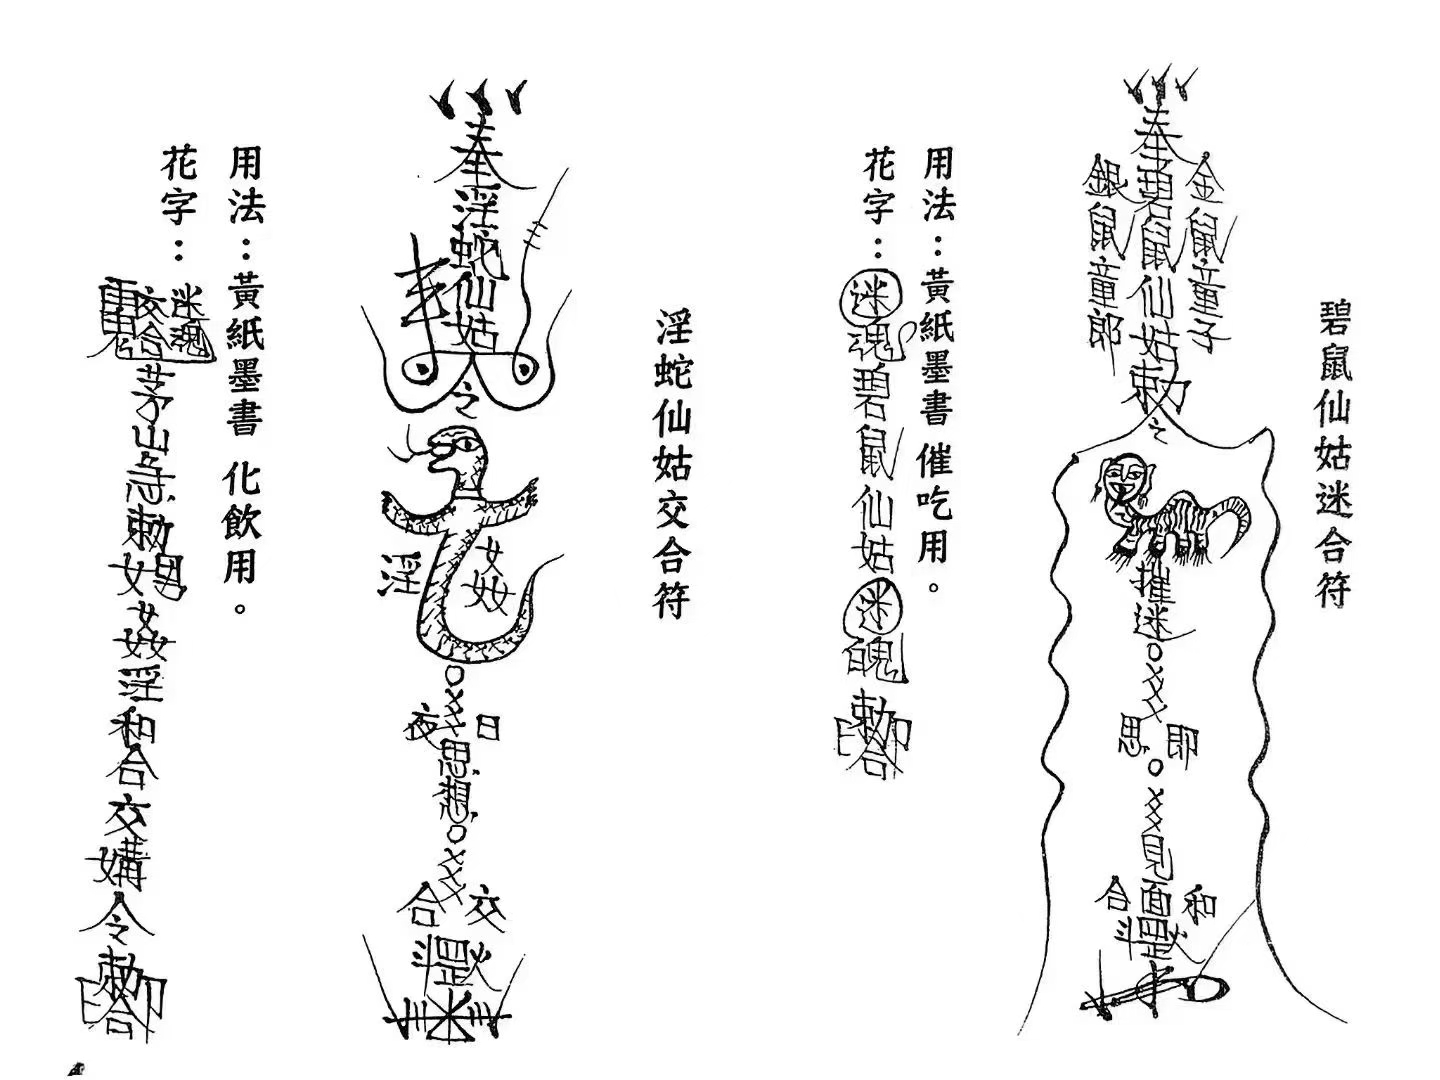 碧鼠仙姑迷合符
金鼠童子
奉碧鼠仙姑敕令
銀鼠童郎
催迷
〇〤〤
即
思
〇〤〤
見面
和
合
用法：黃紙墨書 催吃用。
花字：
迷魂碧鼠仙姑迷魄
敕
合
淫蛇仙姑交合符
奉淫蛇仙姑令
姦
淫
〇〤〤
日
夜
思想
〇〤〤
交
合
用法：黃紙墨書 化飲用。
花字：
迷魂
交合
茅山急敕
女男
姦淫和合交媾令敕
合